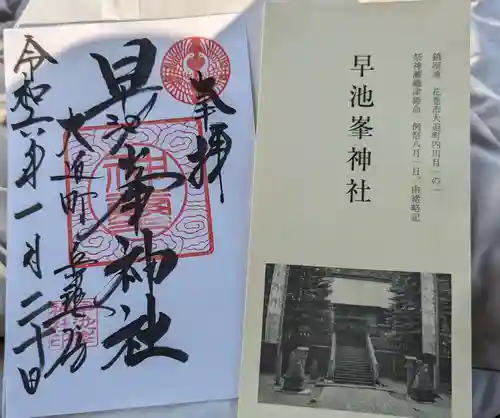 奉拝
早池峯神社
大迫町
令和六年一月二十日
早池峯神社
鎮座地 花巻市大迫町内川目一の一
祭神瀬織津姫命 例祭八月一日、由緒略記